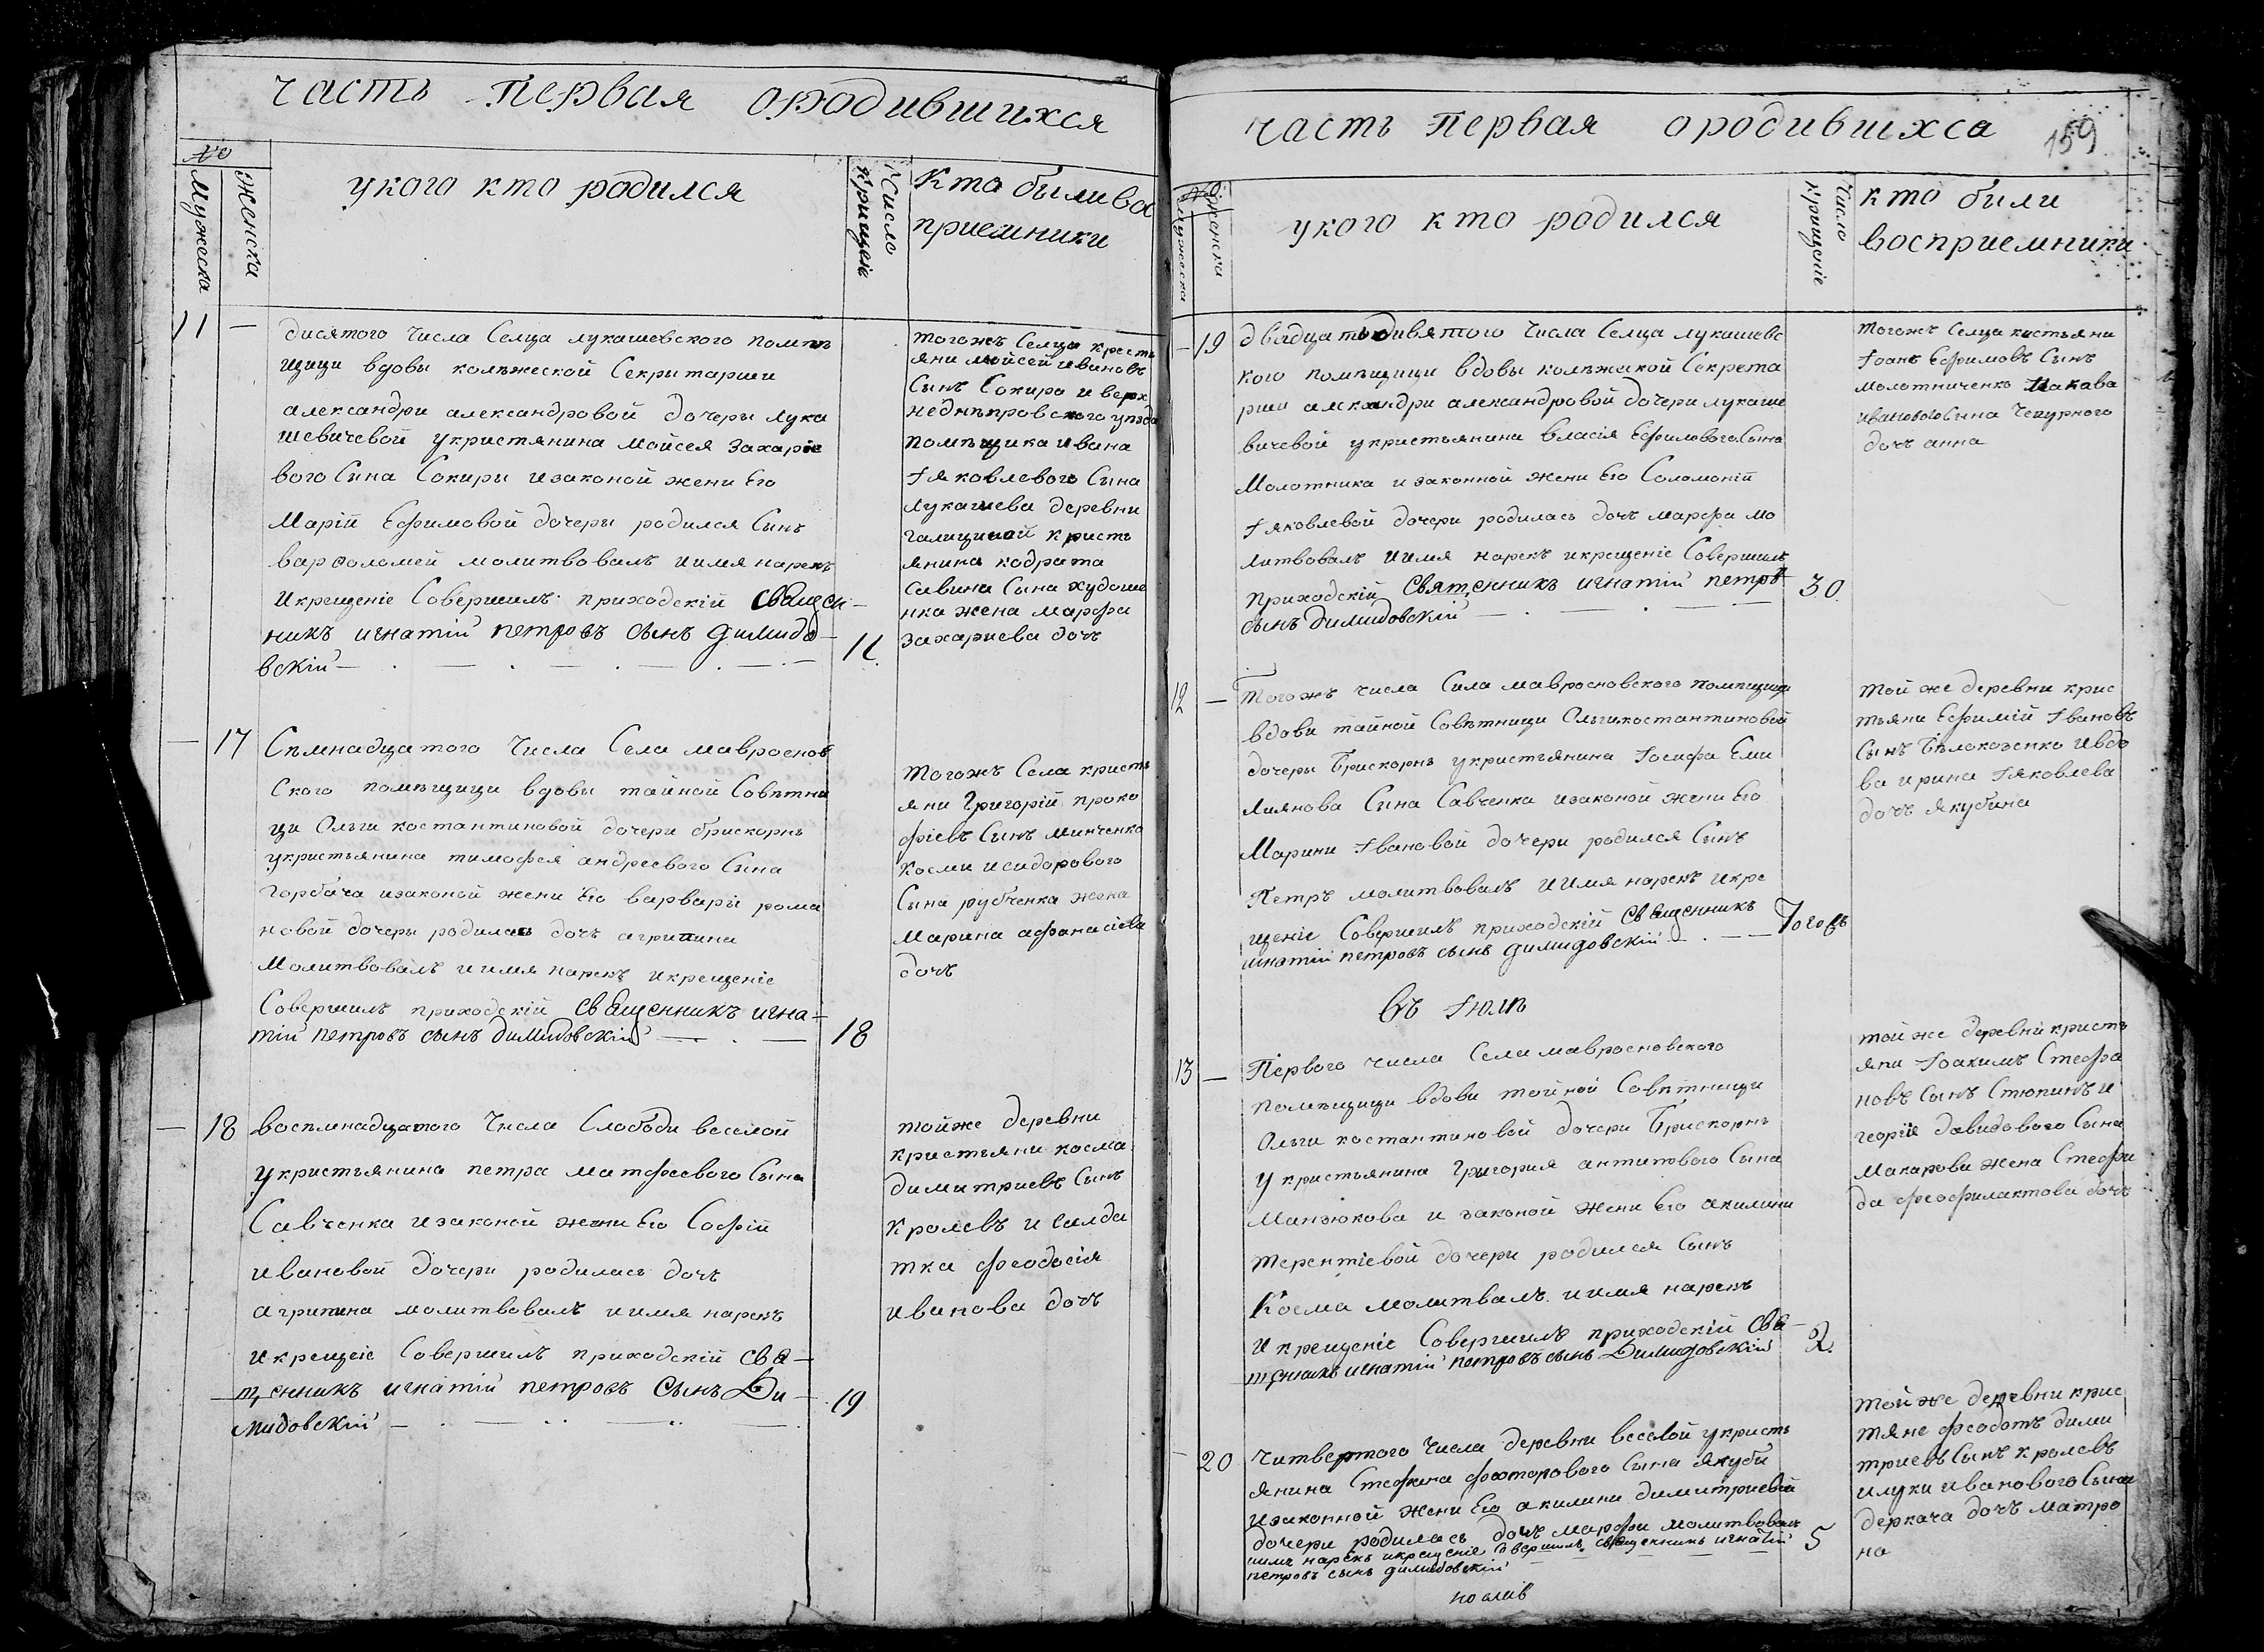 часть первая ородившихся
№
Мужеска
Женска
укого кто родился
Число
крищеія
Кто были во
приемники
11 —
дисятого числа Селца лукашевского помпъ
щици вдовы колѣжеской Секритарши
александри александровой дочеры Лука
шевичевой укристянина Мойсея Захаріе
вого Сина Сокиры изаконой жени Его
Марій Ефимовой дочеры родился Сынъ
варфоломей молитвовалъ иимя нарекъ
икрещеніе Совершилъ приходскій священ-
никъ игнатій петровъ сынъ димидо-
вскій
11.
тогожъ Селца кресть
яни мойсей ивановъ
Сынъ Сокира и верх
неднѣпровского уѣзда
помѣщика ивана
Іяковлевого Сина
Лукашева деревни
галициной кристь
янина кодрата
Савина Сына худоше
нка жена марфа
захариева дочъ
— 17
Сѣмнадцатого Числа Села мавроенов
Ского помѣщици вдови тайной Совѣтни
ци Ольги костантиновой дочери брискорнъ
укристьянина тимофея андреевого Сына
Горбача изаконой жени Его варвари рома
новой дочеры родилась дочъ агрипина
Молитвовалъ иимя нарекъ икрещеніе
Совершилъ приходскій священникъ игна-
тій петровъ сынъ димидовскій
18
тогожъ Села кристь
яни Григорій проко
фіевъ Сынъ минченко
Косми исидорового
Сына рубченка жена
Марина афанасіева
дочъ
— 18
восѣмнадцатого Числа Слободи веселой
укристьянина петра матфеевого Сына
Савченка изаконой жени Его Софій
ивановой дочери родилась дочъ
агрипина молитвовалъ иимя нарекъ
икрещеіе Совершилъ приходскій свя-
щенникъ игнатій петровъ сынъ Ди-
мидовскій
19
тойже деревни
кристьяни косма
димитриевъ Сынъ
Кролевъ и Салда
тка феодосія
иванова дочъ
часть первая ородивихса
159
№
Мужеска
Женска
укого кто родился
Число
крищеніе
кто били
восприемники
— 19
двадцатьдивятого числа Селца лукашевс
кого помѣщици вдовы колѣжской Секрета
рши алекандри александровой дочери лукаше
вичевой укристьянина власія Ефимового Сына
Молотника и законной жени Его Соломоній
Іяковлевой дочери родилась дочъ марфа мо
литвовалъ иимя нарекъ икрещеніе Совершилъ
приходскій Священникъ игнатій петровъ
сынъ димидовскій
30.
тогожъ Селца кистьяни
Іоанъ Ефимовъ Сынъ
молотниченко Иакова
иванового Сына Чепурного
дочъ анна
12 —
Тогожъ числа Села мавроеновского помѣщици
вдови тайной Совѣтници Ольгикостантиновой
дочеры Брискорнъ укристьянина Іосифа Еми
лиянова Сина Савченка изаконой жени Его
Марини Івановой дочери родился Сынъ
Петръ молитвовалъ иимя нарекъ икре
щеніе Совершилъ приходскій священникъ
игнатій петровъ сынъ димидовскій
той же деревни крис
тьяни Ефимій Івановъ
Сынъ Бѣлокозенко ивдо
ва ирина Іяковлева
дочъ якубина
въ Іюлѣ
13 —
Первого числа Села мавроеновского
помѣщици вдови тойной Совѣтници
Ольги костантиновой дочери Брискорнъ
укристьянина Григория антипового Сына
Манзюкова и законой жени Его акилини
терентіевой дочери родился Сынъ
Косма молитвалъ иимя нарекъ
икрещеніе Совершилъ приходскій свя-
щенникъ игнатій петровъ сынъ Димидовскій
2.
той же деревни кристь
яни Іоакимъ Стефа
новъ Сынъ Стюпинъ и
георгія давидового Сына
Макарова жена Стефи
да феофилактова дочъ
— 20
Читвертого числа деревни веселой укристь
янина Стефана феоторового Сына якуби
изаконной жени Его акилини димитриевой
дочери родилась дочъ марфа молитвовалъ
иимя нарекъ икрещеніе Совершилъ священникъ игнатій
петровъ сынъ димидовскій
5
той же деревни крис
тяне феодотъ дими
триевъ Сынъ кролевъ
илуки иванового Сына
деркача дочъ матро
на